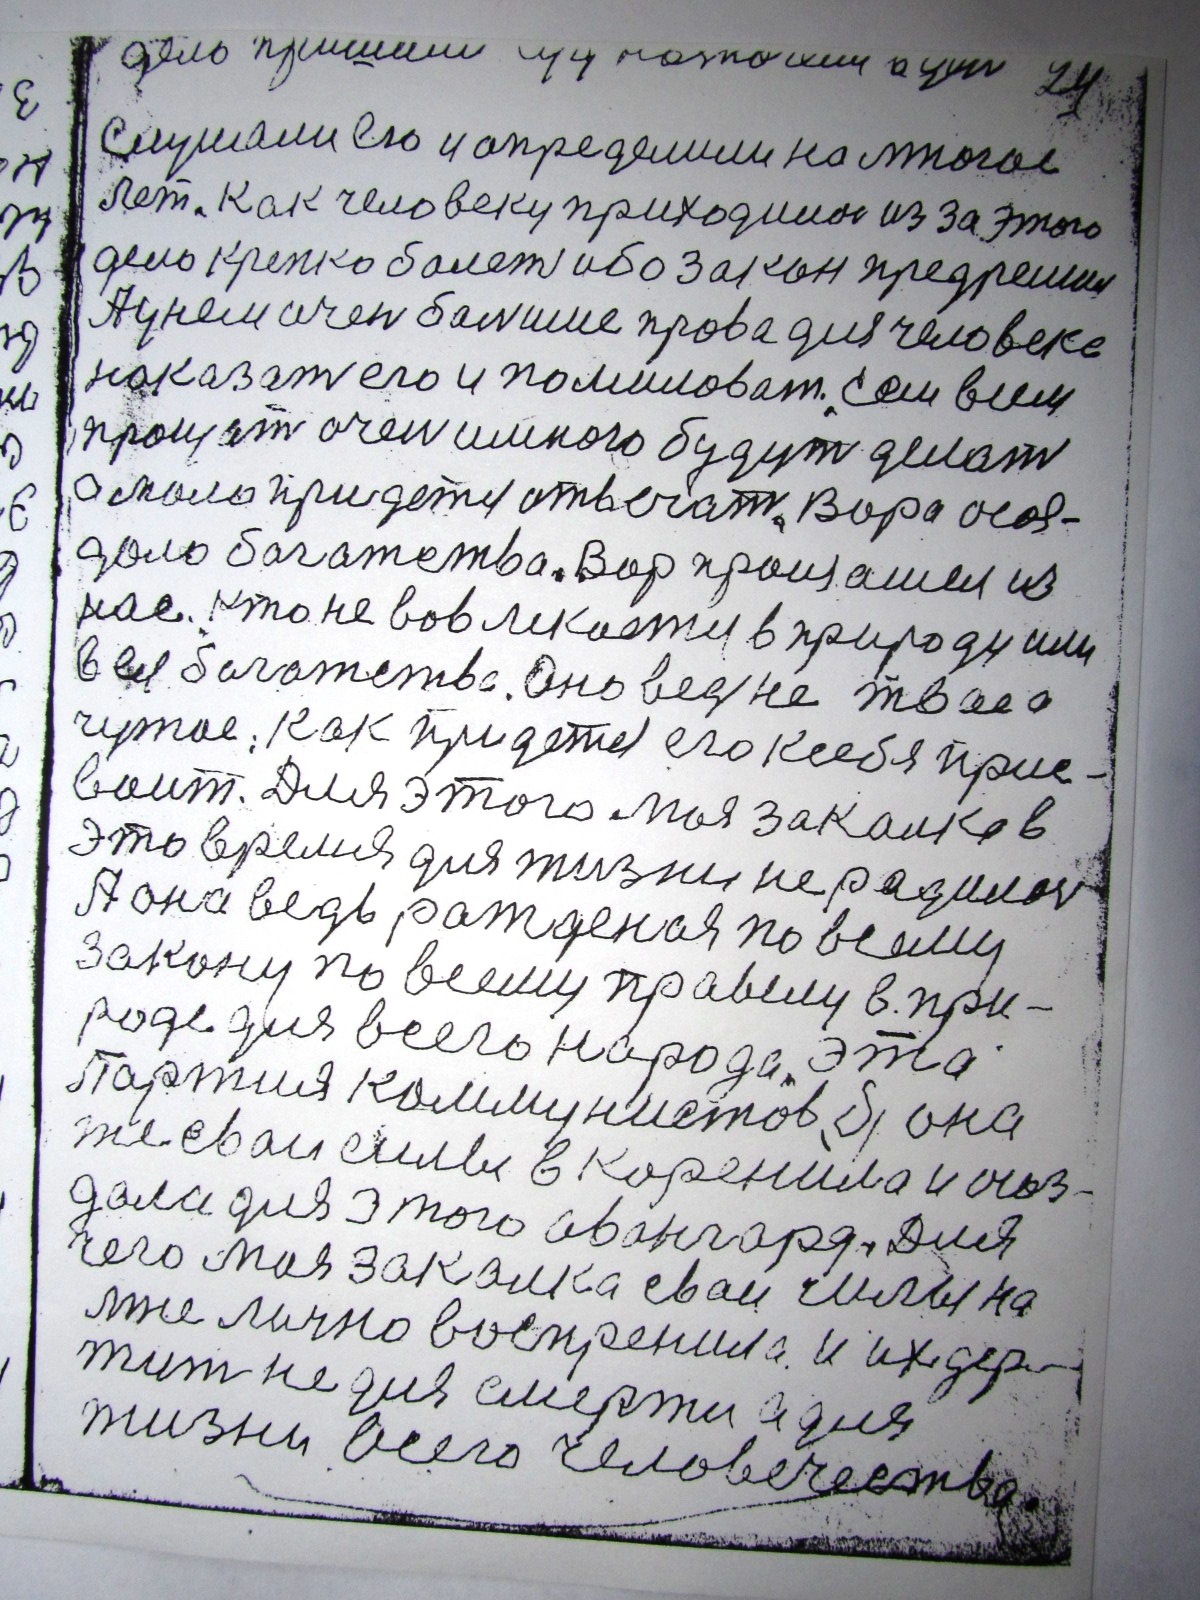 дело пришили 24
Слушали его и определили на многое
лет. Как человеку приходилос из за этого
дело крепко балет ибо закон предрешил
А у нем очен балшие права для человека
наказат его и помиловат. Если всем
прощат очен много будут делат
а мало придется отвечат. Вора осоз-
дало багатства. Вор произашел из
нас. Кто не вовликается в природу или
в ея багатства. Оно ведь не твое а
чужое. Как придется его ксебя прис-
воит. Для этого моя закалка в
это время для жизни не радилас
А она ведь ражденая по всему
закону по всему правелу в при-
роде для всего народа. Эта
Партия коммунистов б, она
же сваи силы в коренила и осоз-
дала для этого авангард. Для
чего моя закалка сваи силы на
мне лично воспренила и их дер-
жит не для смерти а для
жизни всего человечества.